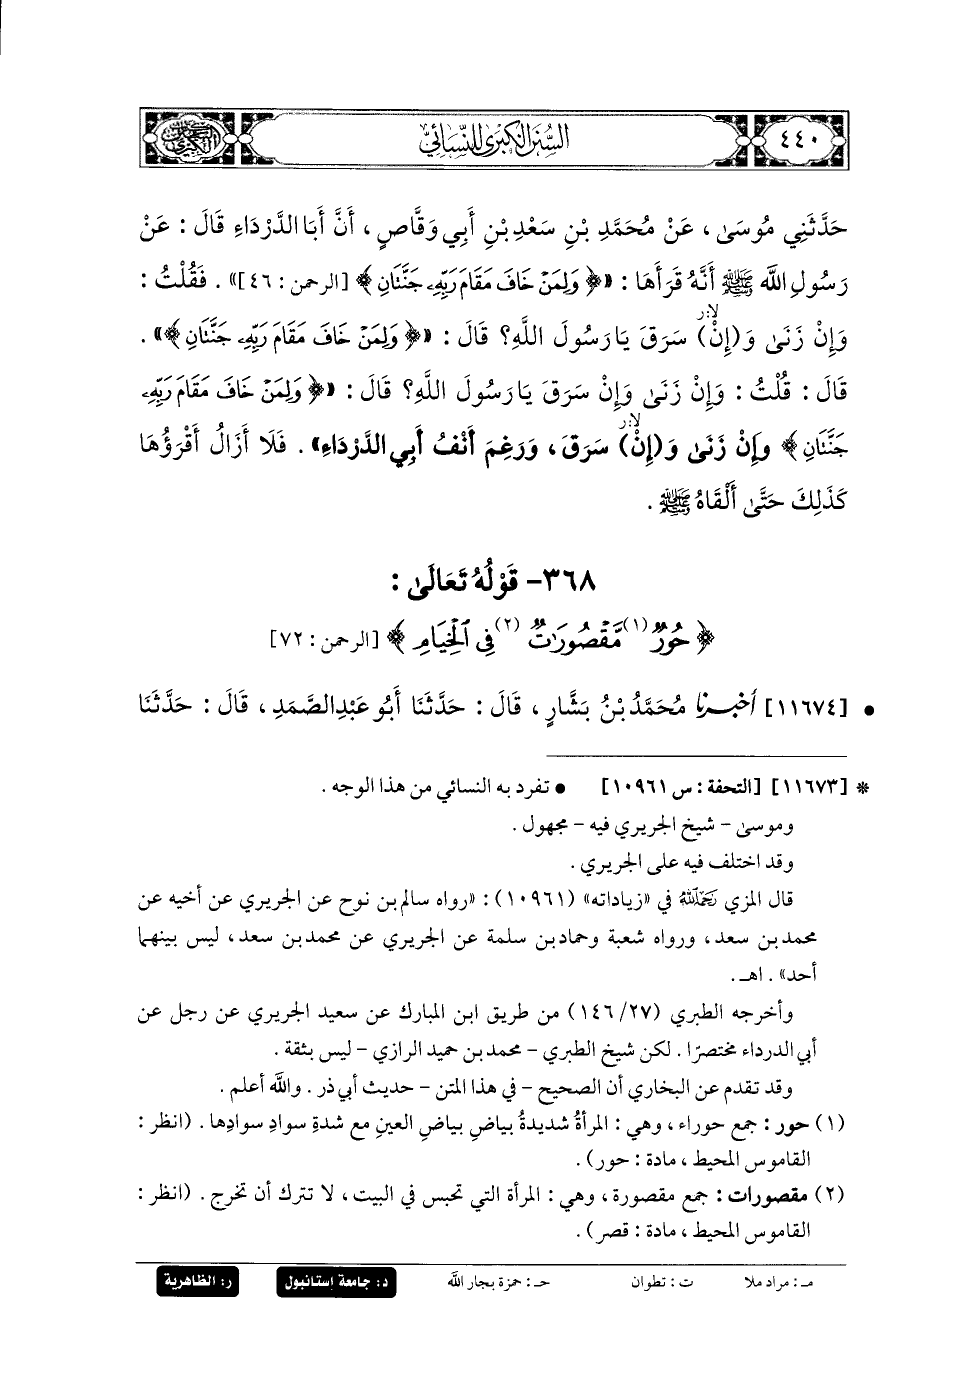 ٤٤٠
السُّنَنُ الكُبْرَى لِلنَّسَائِيِّ
حَدَّثَنِي مُوسَىٰ، عَنْ مُحَمَّدِ بْنِ سَعْدِ بْنِ أَبِي وَقَّاصٍ، أَنَّ أَبَا الدَّرْدَاءِ قَالَ: عَنْ
رَسُولِ اللَّه ﷺ أَنَّهُ قَرَأَهَا: «﴿وَلِمَنۡ خَافَ مَقَامَ رَبِّهِۦ جَنَّتَانِ﴾ [الرحمن: ٤٦]». فَقُلْتُ:
وَإِنْ زَنَىٰ وَ(إِنْ) سَرَقَ يَا رَسُولَ اللَّهِ؟ قَالَ: «﴿وَلِمَنۡ خَافَ مَقَامَ رَبِّهِۦ جَنَّتَانِ﴾».
قَالَ: قُلْتُ: وَإِنْ زَنَىٰ وَإِنْ سَرَقَ يَا رَسُولَ اللَّهِ؟ قَالَ: «﴿وَلِمَنۡ خَافَ مَقَامَ رَبِّهِۦ
جَنَّتَانِ﴾ وَإِنْ زَنَىٰ وَ(إِنْ) سَرَقَ، وَرَغِمَ أَنْفُ أَبِي الدَّرْدَاءِ». فَلَا أَزَالُ أَقْرَؤُهَا
كَذَلِكَ حَتَّىٰ أَلْقَاهُ ﷺ.
٣٦٨- قَوْلُهُ تَعَالَىٰ:
﴿حُورٌ(١) مَّقۡصُورَٰتٌ(٢) فِي ٱلۡخِيَامِ﴾ [الرحمن: ٧٢]
• [١١٦٧٤] أَخْبَرَنَا مُحَمَّدُ بْنُ بَشَّارٍ، قَالَ: حَدَّثَنَا أَبُو عَبْدِ الصَّمَدِ، قَالَ: حَدَّثَنَا
* [١١٦٧٣] [التحفة: س ١٠٩٦١] • تفرد به النسائي من هذا الوجه.
وموسىٰ - شيخ الجريري فيه - مجهول.
وقد اختلف فيه على الجريري.
قال المزي رَحِمَهُ اللَّهُ في «زياداته» (١٠٩٦١): «رواه سالم بن نوح عن الجريري عن أخيه عن
محمد بن سعد، ورواه شعبة وحماد بن سلمة عن الجريري عن محمد بن سعد، ليس بينهما
أحد». اهـ.
وأخرجه الطبري (٢٧/ ١٤٦) من طريق ابن المبارك عن سعيد الجريري عن رجل عن
أبي الدرداء مختصرًا. لكن شيخ الطبري - محمد بن حميد الرازي - ليس بثقة.
وقد تقدم عن البخاري أن الصحيح - في هذا المتن - حديث أبي ذر. واللَّه أعلم.
(١) حور: جمع حوراء، وهي: المرأةُ شديدةُ بياضِ بياضِ العينِ مع شدةِ سوادِ سوادِها. (انظر:
القاموس المحيط، مادة: حور).
(٢) مقصورات: جمع مقصورة، وهي: المرأة التي تحبس في البيت، لا تترك أن تخرج. (انظر:
القاموس المحيط، مادة: قصر).
مـ: مراد ملا ت: تطوان حـ: حمزة بجار اللَّه د: جامعة إستانبول ر: الظاهرية